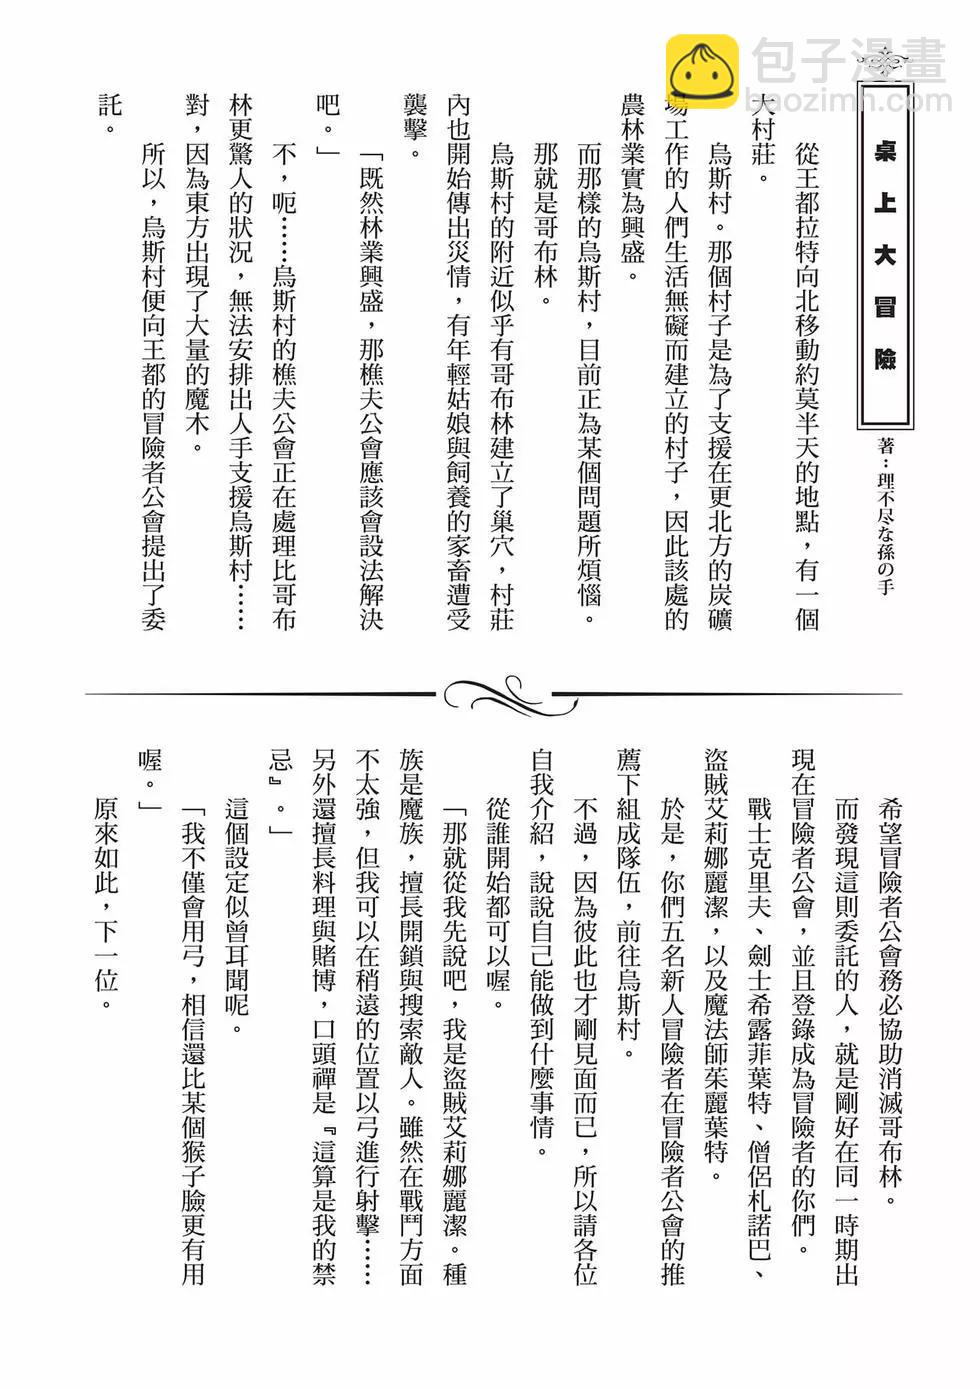 包子漫畫
baozimh.com
桌上大冒險
著：理不尽な孫の手
從王都拉特向北移動約莫半天的地點，有一個
大村莊。
烏斯村。那個村子是為了支援在更北方的炭礦
場工作的人們生活無礙而建立的村子，因此該處的
農林業實為興盛。
而那樣的烏斯村，目前正為某個問題所煩惱。
那就是哥布林。
烏斯村的附近似乎有哥布林建立了巢穴，村莊
內也開始傳出災情，有年輕姑娘與飼養的家畜遭受
襲擊。
「既然林業興盛，那樵夫公會應該會設法解決
吧。」
不，呃……烏斯村的樵夫公會正在處理比哥布
林更驚人的狀況，無法安排出人手支援烏斯村……
對，因為東方出現了大量的魔木。
所以，烏斯村便向王都的冒險者公會提出了委
託。
希望冒險者公會務必協助消滅哥布林。
而發現這則委託的人，就是剛好在同一時期出
現在冒險者公會，並且登錄成為冒險者的你們。
戰士克里夫、劍士希露菲葉特、僧侶札諾巴、
盜賊艾莉娜麗潔，以及魔法師茱麗葉特。
於是，你們五名新人冒險者在冒險者公會的推
薦下組成隊伍，前往烏斯村。
不過，因為彼此也才剛見面而已，所以請各位
自我介紹，說說自己能做到什麼事情。
從誰開始都可以喔。
「那就從我先說吧，我是盜賊艾莉娜麗潔。種
族是魔族，擅長開鎖與搜索敵人。雖然在戰鬥方面
不太強，但我可以在稍遠的位置以弓進行射擊……
另外還擅長料理與賭博，口頭禪是『這算是我的禁
忌』。」
這個設定似曾耳聞呢。
「我不僅會用弓，相信還比某個猴子臉更有用
喔。」
原來如此，下一位。